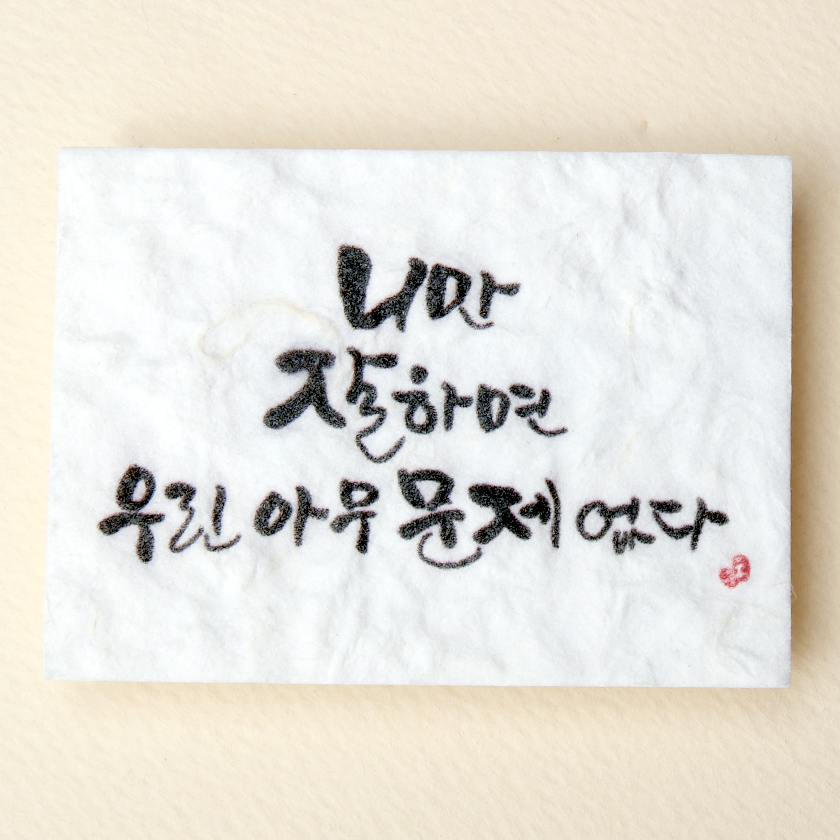 니만
잘하면
우린 아무 문제 없다